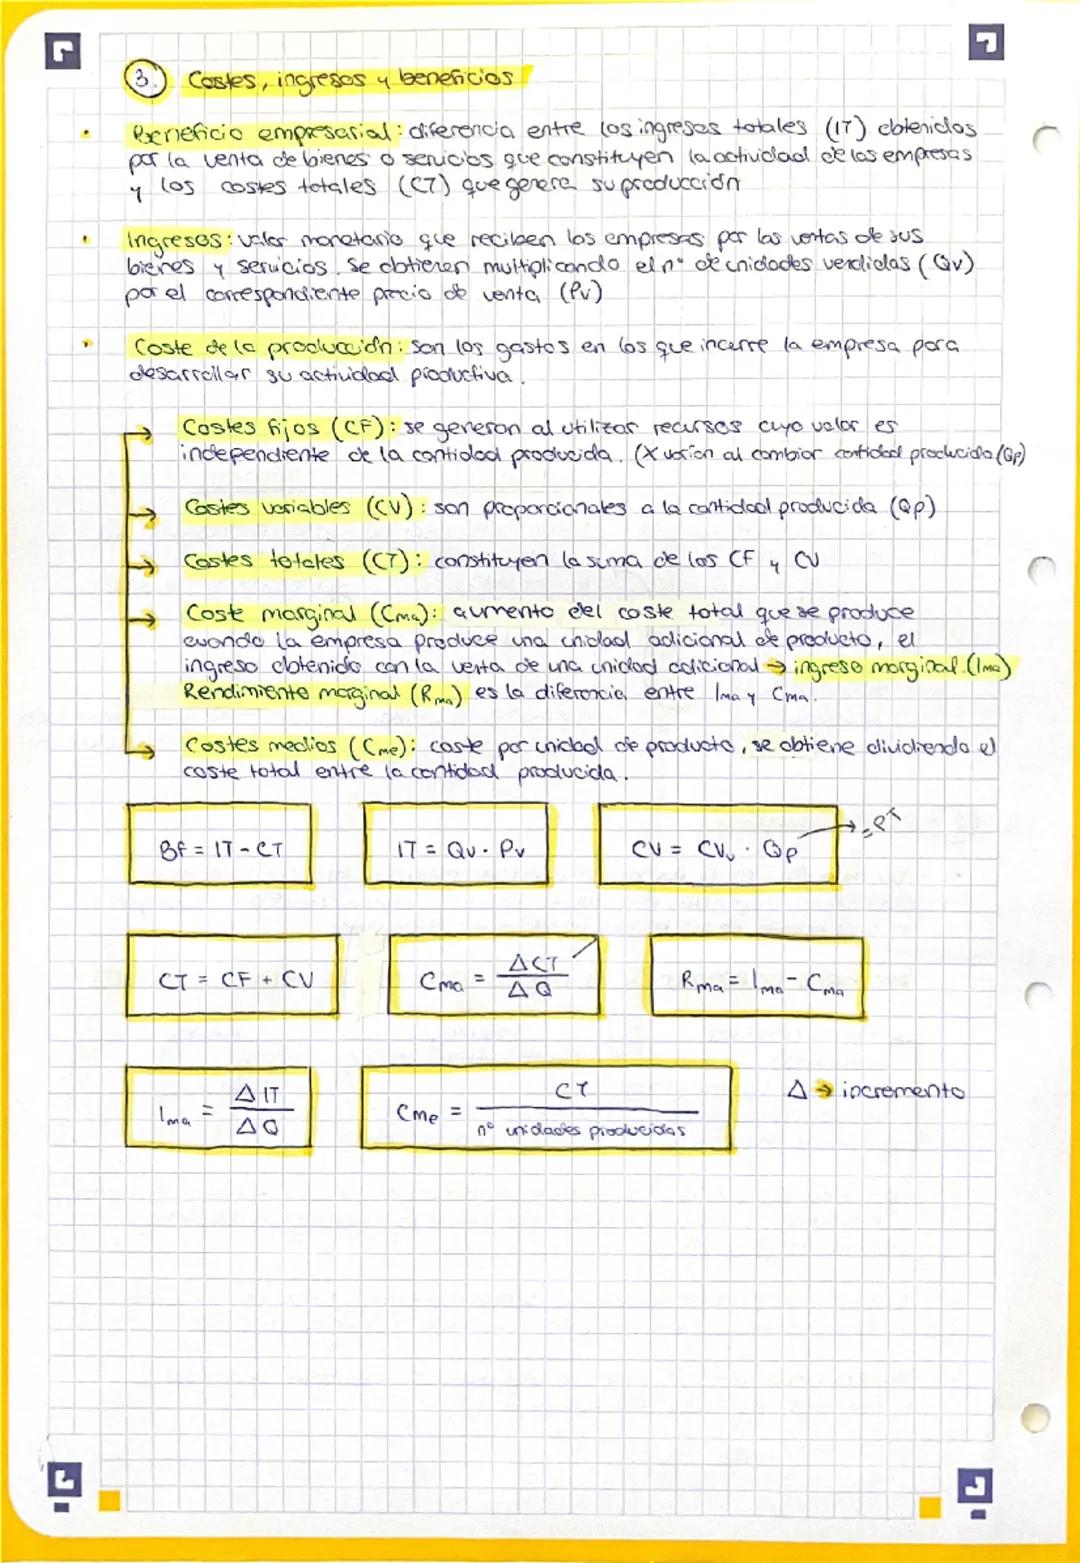 3. Costes, ingresos y beneficios
Beneficio empresarial: diferencia entre los ingresos totales (IT) obtenidos
por la venta de bienes o servicios que constituyen la actividad de las empresas
y los costes totales (CT) que genera su producción
Ingresos: valor monetario que reciben las empresas por las ventas de sus
bienes y servicios. Se obtienen multiplicando el nº de unidades vendidas (Qv)
por el correspondiente precio de venta (Pv)
Coste de la producción: son los gastos en los que incurre la empresa para
desarrollar su actividad productiva.
→ Costes fijos (CF): se generan al utilizar recursos cuyo valor es
independiente de la cantidad producida. (X varían al cambiar cantidad producida (Qp)
→ Costes variables (CV): son proporcionales a la cantidad producida (Qp)
→ Costes totales (CT): constituyen la suma de los CF y CV
→ Coste marginal (Cma): aumento del coste total que se produce
cuando la empresa produce una unidad adicional de producto, el
ingreso obtenido con la venta de una unidad adicional → ingreso marginal (Ima)
Rendimiento marginal (Rma) es la diferencia entre Ima y Cma.
→ Costes medios (Cme): coste por unidad de producto, se obtiene dividiendo el
coste total entre la cantidad producida.
Bf = IT - CT
IT = Qv · Pv
CV = CVu · Qp → = PT
CT = CF + CV
Cma = ΔCT / ΔQ
Rma = Ima - Cma
Ima = ΔIT / ΔQ
Cme = CT / nº unidades producidas
Δ → incremento